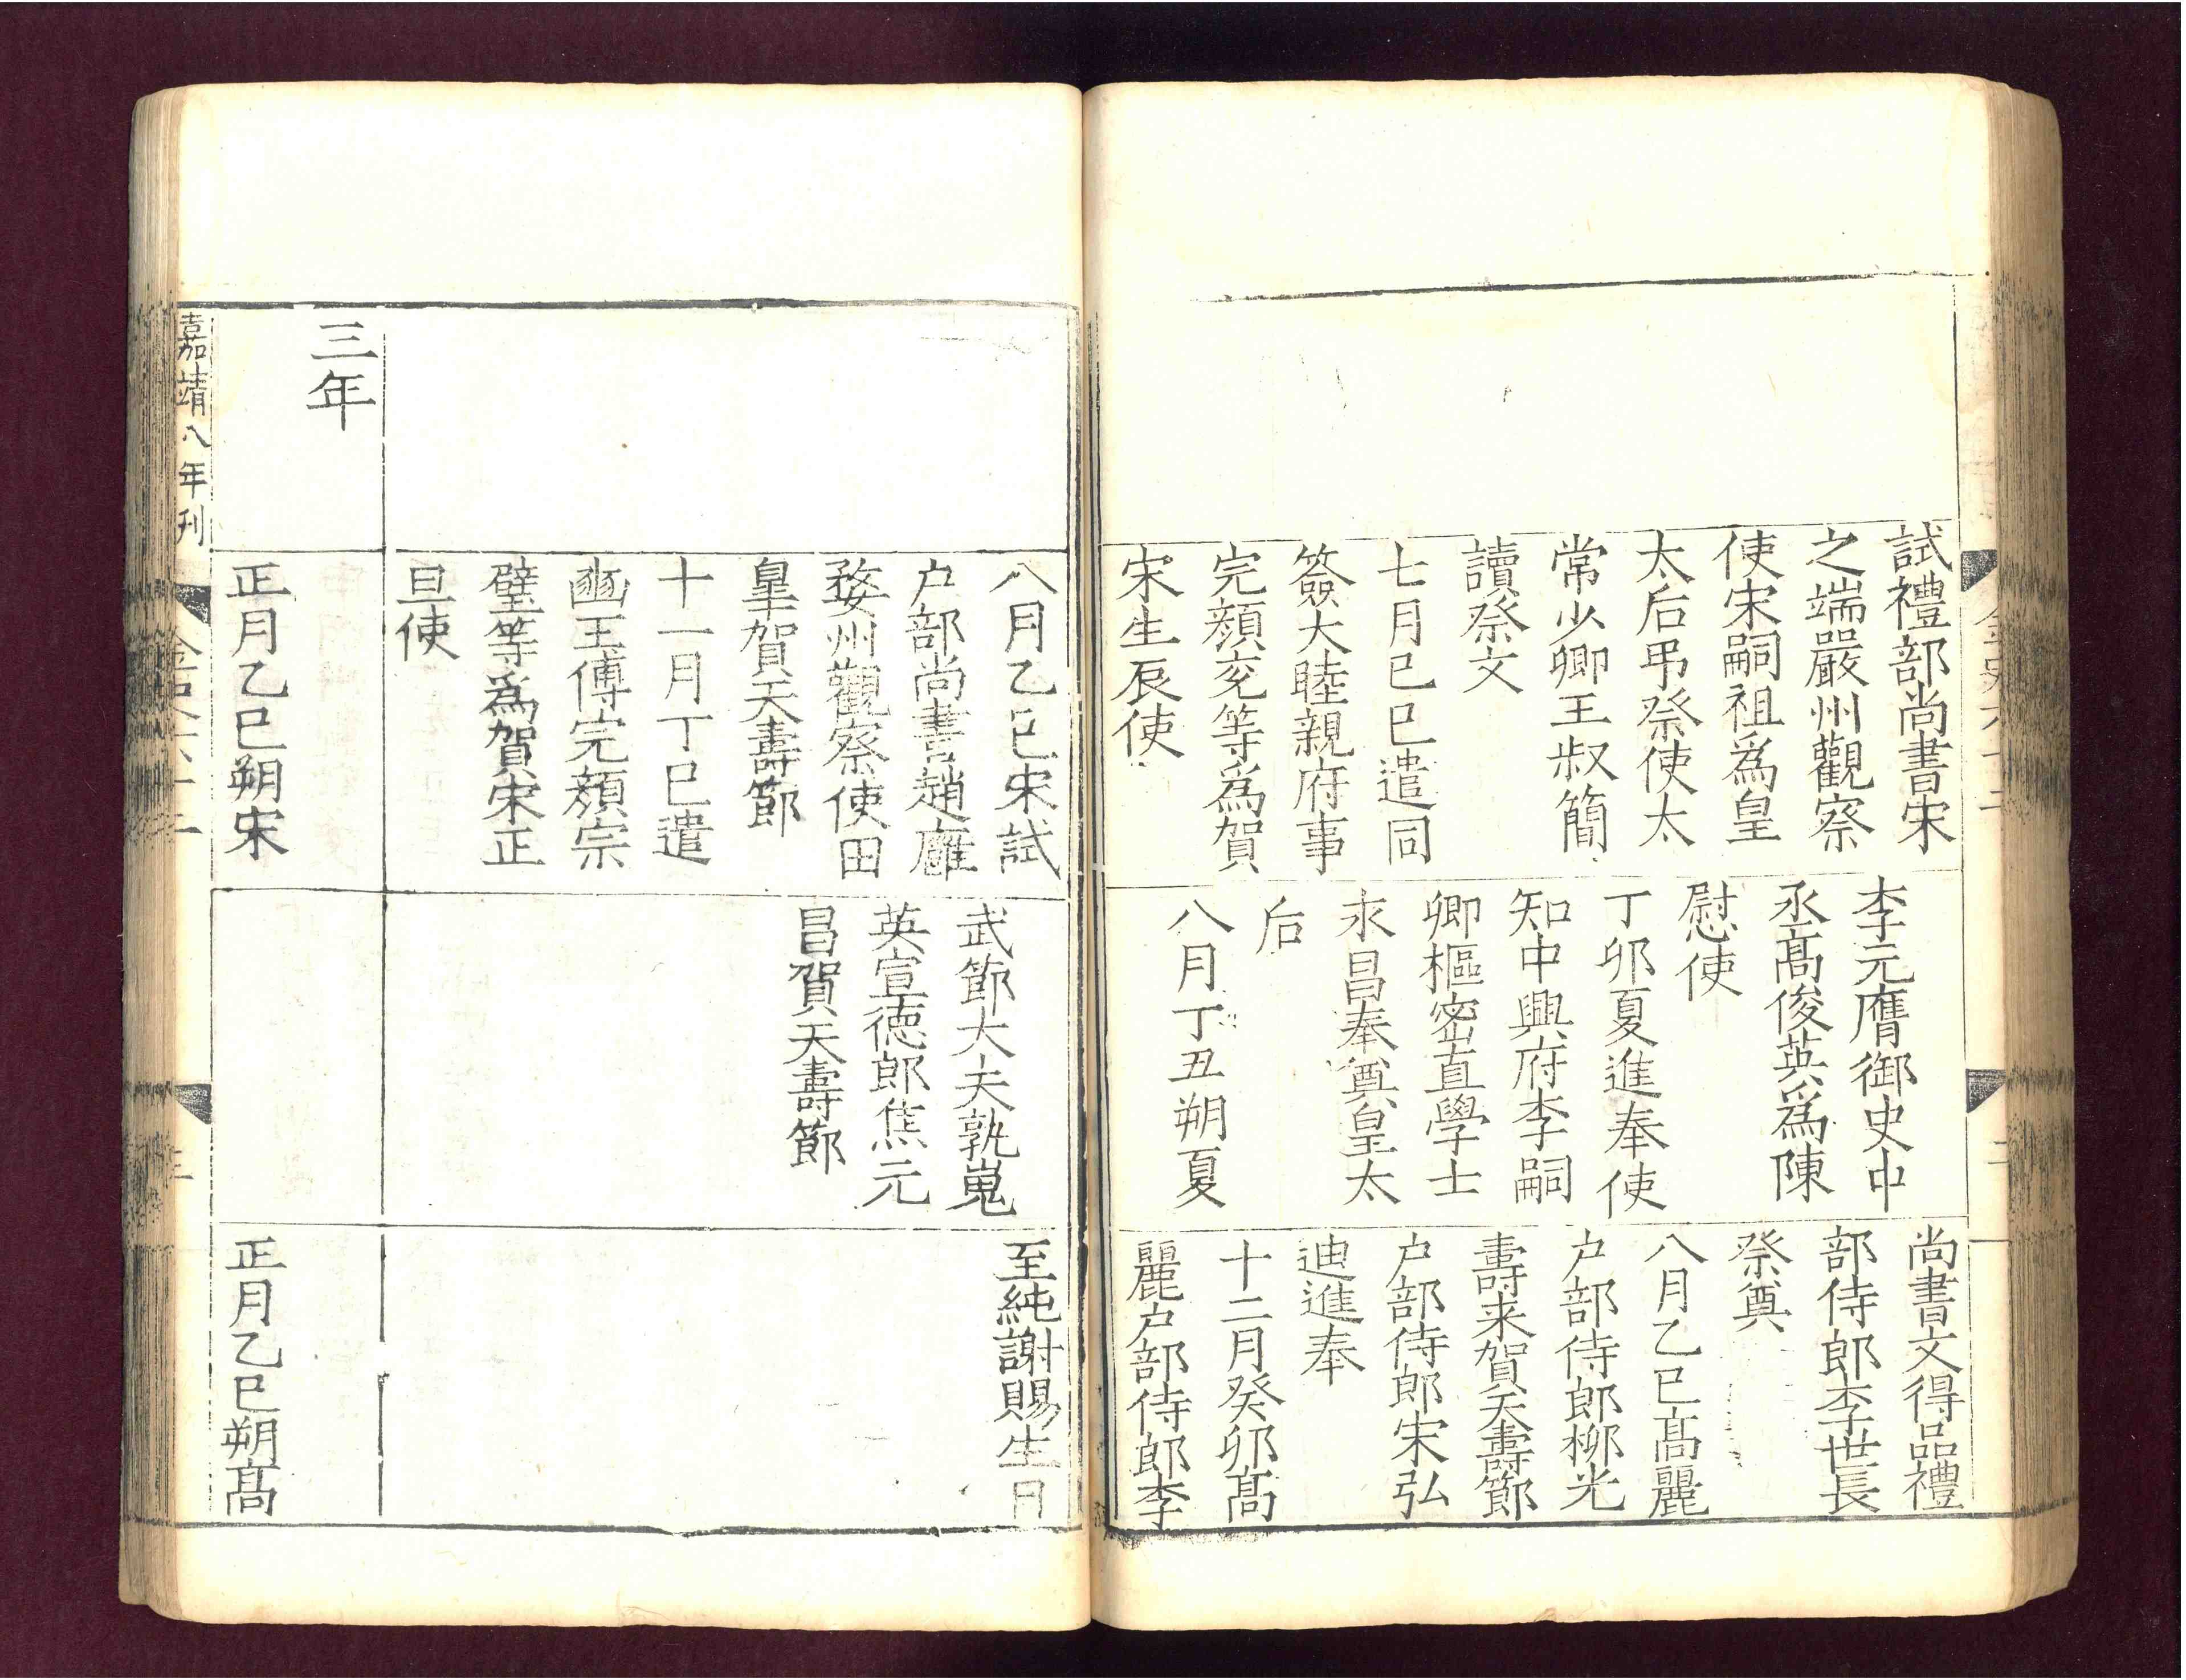 試禮部尚書宋
之端嚴州觀察
使宋嗣祖爲皇
太后弔祭使太
常少卿王叔簡
讀祭文
七月己巳遣同
簽大睦親府事
完顏兖等爲賀
宋生辰使
李元膺御史中
丞髙俊英爲陳
慰使
丁卯夏進奉使
知中興府李嗣
卿樞密直學士
永昌奉奠皇太
后
八月丁丑朔夏
尚書文得品禮
部侍郎李世長
祭奠
八月乙巳髙麗
户部侍郎柳光
壽来賀天壽節
户部侍郎宋弘
迪進奉
十二月癸卯髙
麗户部侍郎李
八月乙巳宋試
户部尚書趙廱
婺州觀察使田
臯賀天壽節
十一月丁巳遣
豳王傅完顏宗
璧等爲賀宋正
旦使
武節大夫執嵬
英宣德郎焦元
昌賀天壽節
至純謝賜生日
三年
正月乙巳朔宋
正月乙巳朔髙
嘉靖八年刊
金史六十二
三